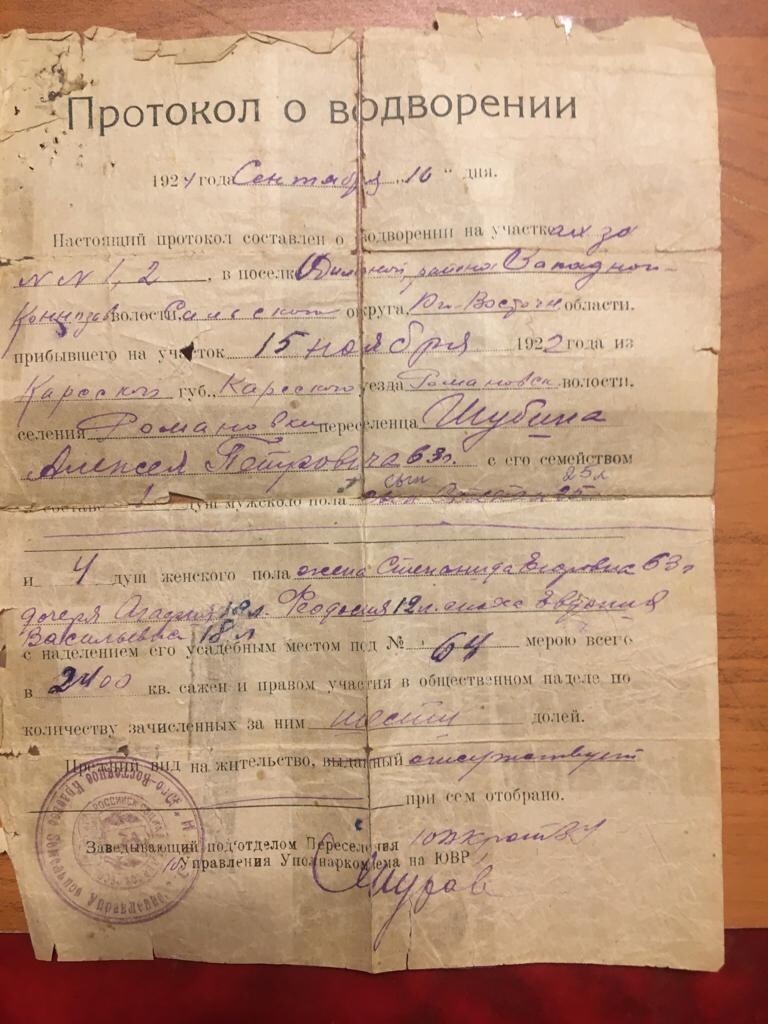 Протокол о водворении
1924 года Сентября „16“ дня.
Настоящий протокол составлен о водворении на участках за
NN 1, 2, в поселке района Западной
волости, Сальского округа, Юго-Восточн области.
прибывшего на участок 15 ноября 1922 года из
Карсской губ., Карсского уезда Романовск волости.
селения Романовки переселенца Шубина
Алексея Петровича 63 г. с его семейством
сын 25 л
составе 1 душ мужского пола 25
и 4 душ женского пола жена Степанида Егоровна 63 г
дочеря Агафия 19 л. Феодосия 12 л. сноха Евдокия
Васильевна 18 л
с наделением его усадебным местом под № 64 мерою всего
в 2400 кв. сажен и правом участия в общественном наделе по
количеству зачисленных за ним шести долей.
Прежний вид на жительство, выданный отсутствует
при сем отобрано.
Заведывающий подотделом Переселения
Управления Уполнаркомзема на ЮВР
Юго-Восточное Краевое Земельное Управление